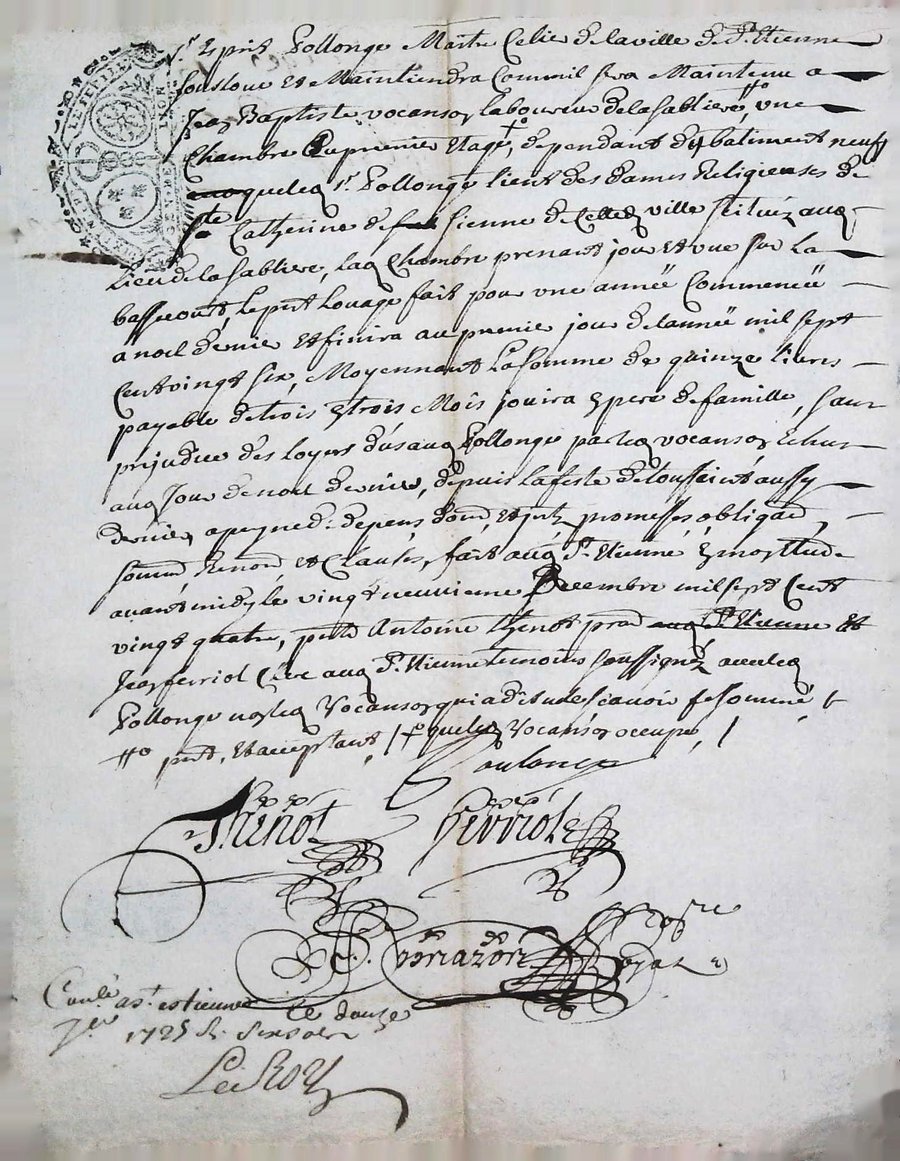 Sr Esprit Pollonge Maitre Celie de la ville de St Etienne
soubloue et Maintiendra Comm il sera Maintenu a
Jean Baptiste vocanson laboureur de la sabliere, une
Chambre au premier Etage, dependant du batiment neuf
queled Sr Pollonge tient des dames Religieuses de
Ste Catherine de Sienne de Celled ville scituéz aud
Lieu de la sabliere, lad Chambre prenant jour et vue sur la
bassecourt, le pnt Louage fait pour une année Commencée
a noel dernier et finira au premier jour de lannée mil sept
Cent vingt six, Moyennant la somme de quinze livres
payable de trois en trois Mois jouira en pere de famille, sans
prejudice des loyers deus aud Pollonge par led vocanson Echus
aud Jour de noel dernier, depuis la feste de toussaint aussy
dernier, a peyne d: depens, dom, et jnts, promesses, obligaons,
soumons, Renons, et Clauses, fait aud St Etienne en mon Etude
avant midy le vingt neuvieme Decembre mil sept Cent
vingt quatre, pnts Antoine thenot prad aud St Etienne et
Jean ferriol Clerc aud St Etienne temoins soussignéz avec led
Pollonge non led Vocanson qui a dit ne scavoir fe sommé,
pnt, et acceptant, / quele Vocanson occupe, /
Poulonge
Thenot Ferriol
Nore
Royal
Conlé a St estienne le douze
1725
Le Roy